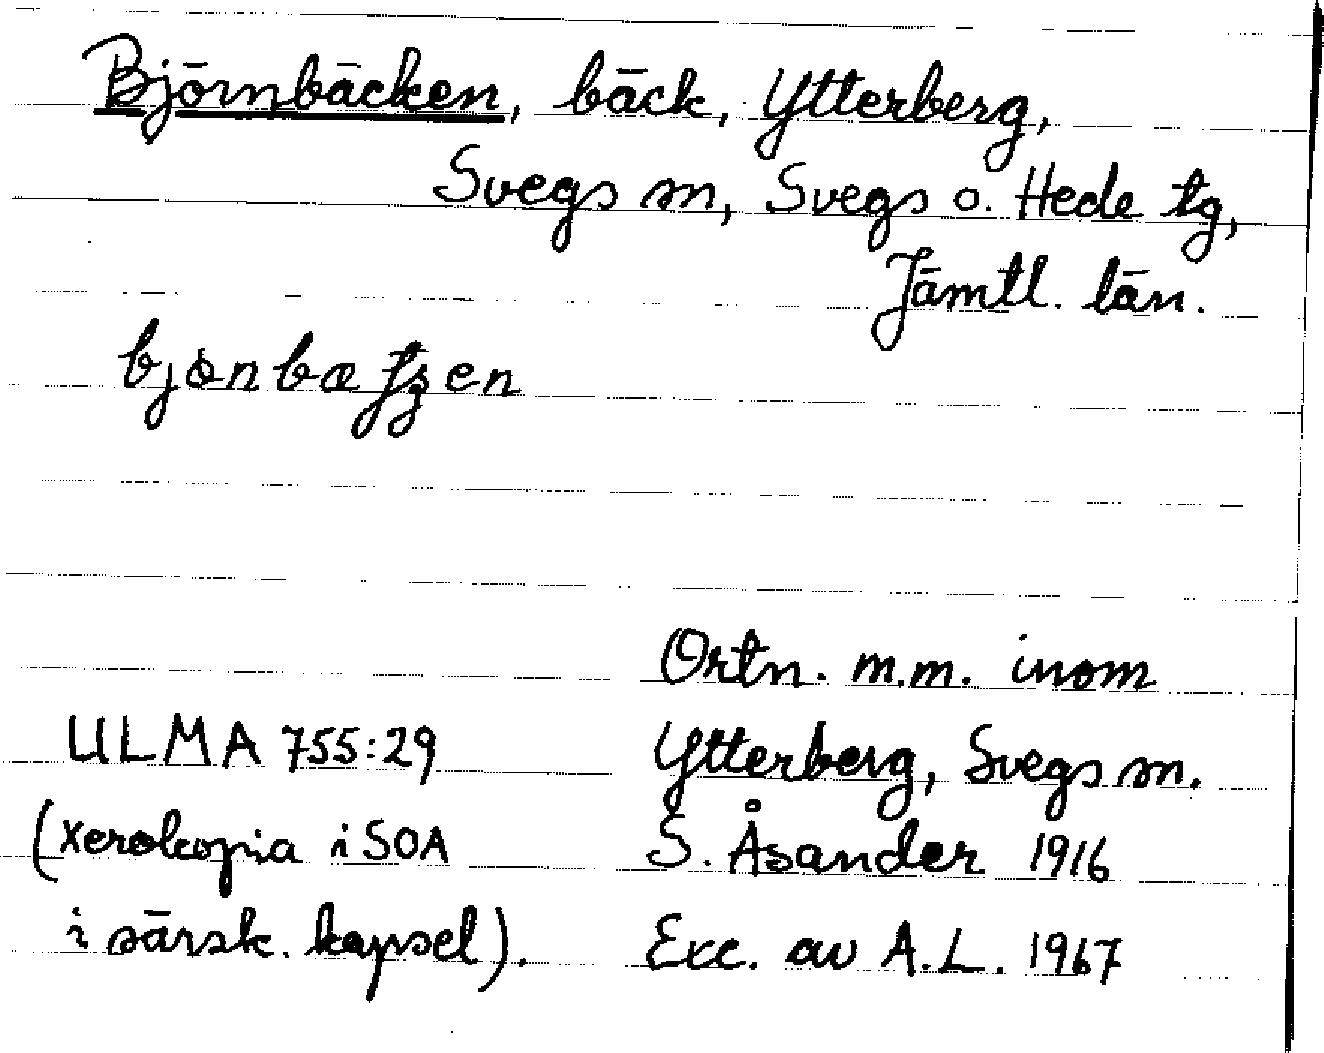 Björnbäcken, bäck, Ytterberg,
Svegs sn, Svegs o. Hede tg,
Jämtl. län.
ULMA 755:29
(xerokopia i SOA
i särsk. kapsel).
Ortn. m.m. inom
Ytterberg, Svegs sn.
S. Åsander 1916
Exc. av A.L. 1967